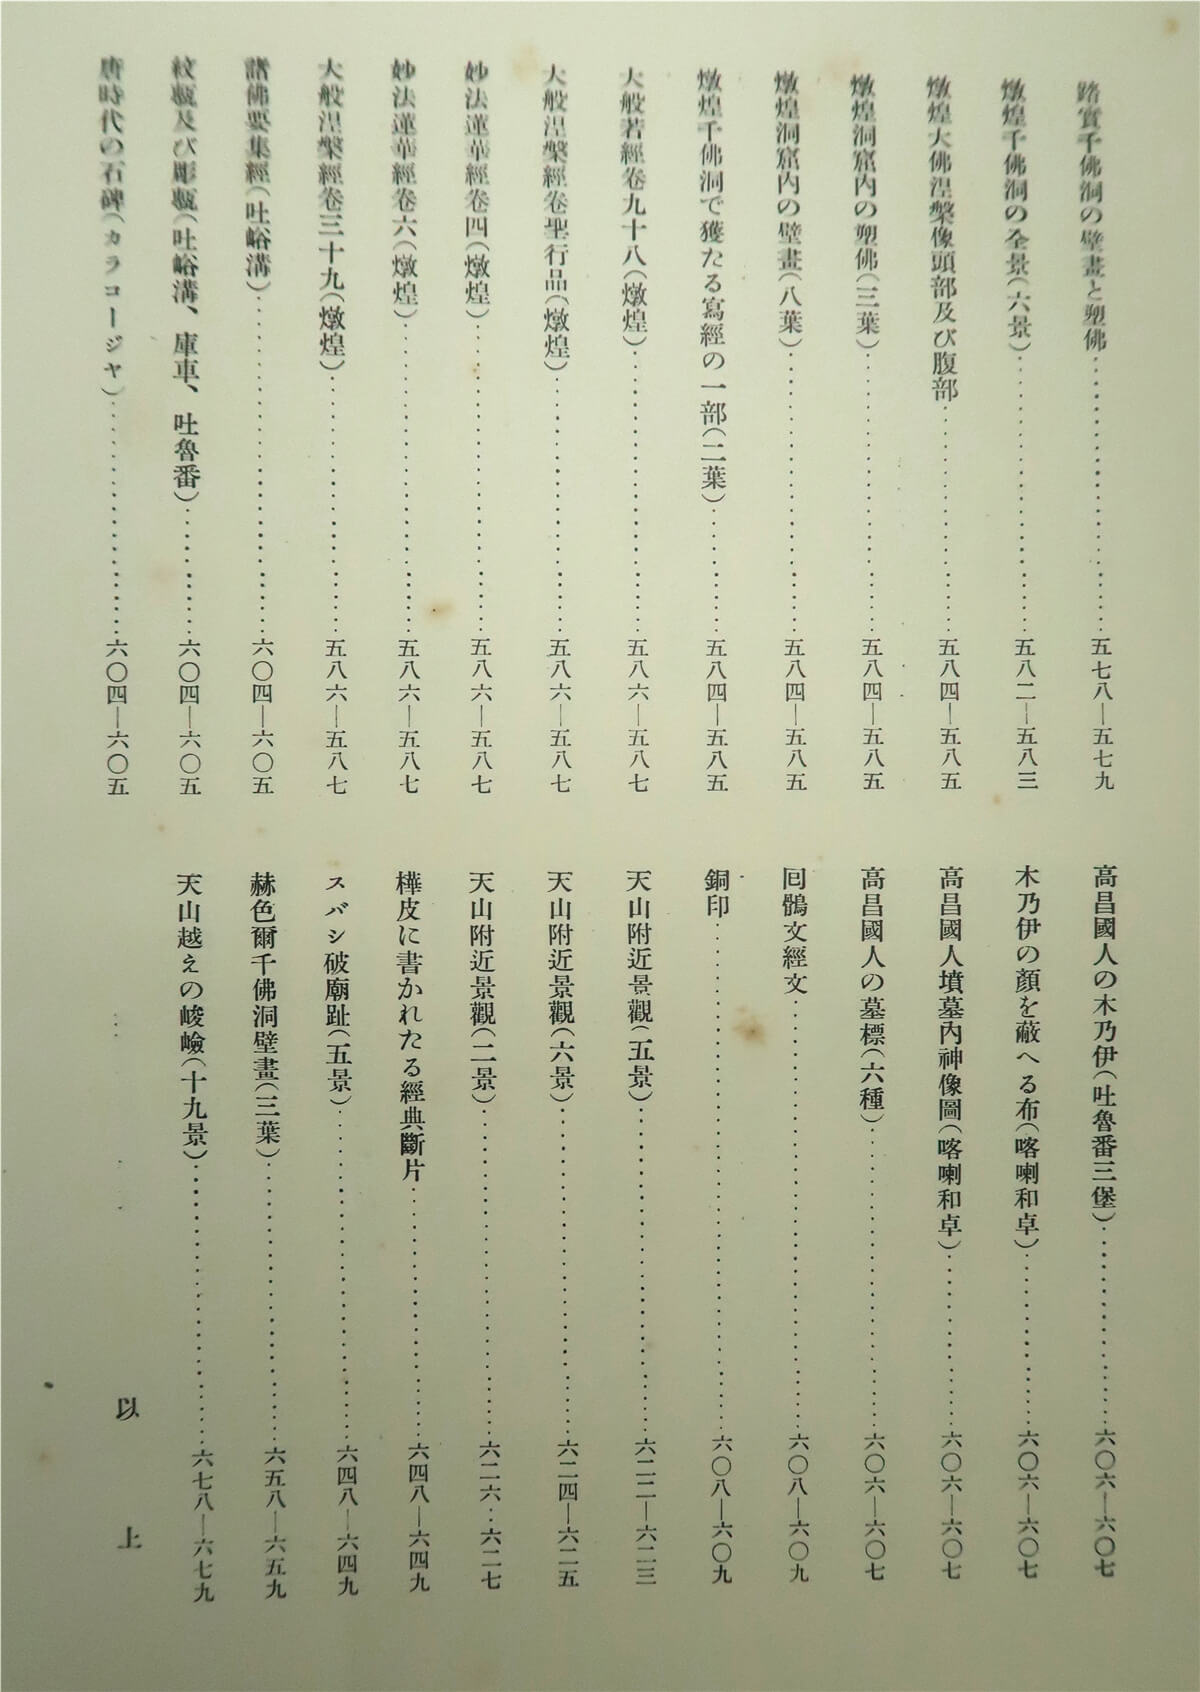 踏實千佛洞の壁畫と塑佛……五七八—五七九
燉煌千佛洞の全景(六景)……五八二—五八三
燉煌大佛涅槃像頭部及び腹部……五八四—五八五
燉煌洞窟内の塑佛(三葉)……五八四—五八五
燉煌洞窟内の壁畫(八葉)……五八四—五八五
燉煌千佛洞で獲たる寫經の一部(二葉)……五八四—五八五
大般若經卷九十八(燉煌)……五八六—五八七
大般涅槃經卷聖行品(燉煌)……五八六—五八七
妙法蓮華經卷四(燉煌)……五八六—五八七
妙法蓮華經卷六(燉煌)……五八六—五八七
大般涅槃經卷三十九(燉煌)……五八六—五八七
諸佛要集經(吐峪溝)……六〇四—六〇五
紋甎及び彫甎(吐峪溝、庫車、吐魯番)……六〇四—六〇五
唐時代の石碑(カラコージャ)……六〇四—六〇五
高昌國人の木乃伊(吐魯番三堡)……六〇六—六〇七
木乃伊の顏を蔽へる布(喀喇和卓)……六〇六—六〇七
高昌國人墳墓內神像圖(喀喇和卓)……六〇六—六〇七
高昌國人の墓標(六種)……六〇六—六〇七
回鶻文經文……六〇八—六〇九
銅印……六〇八—六〇九
天山附近景觀(五景)……六二二—六二三
天山附近景觀(六景)……六二四—六二五
天山附近景觀(二景)……六二六‥六二七
樺皮に書かれたる經典斷片……六四八—六四九
スバシ破廟趾(五景)……六四八—六四九
赫色爾千佛洞壁畫(三葉)……六五八—六五九
天山越えの峻嶮(十九景)……六七八—六七九
以上